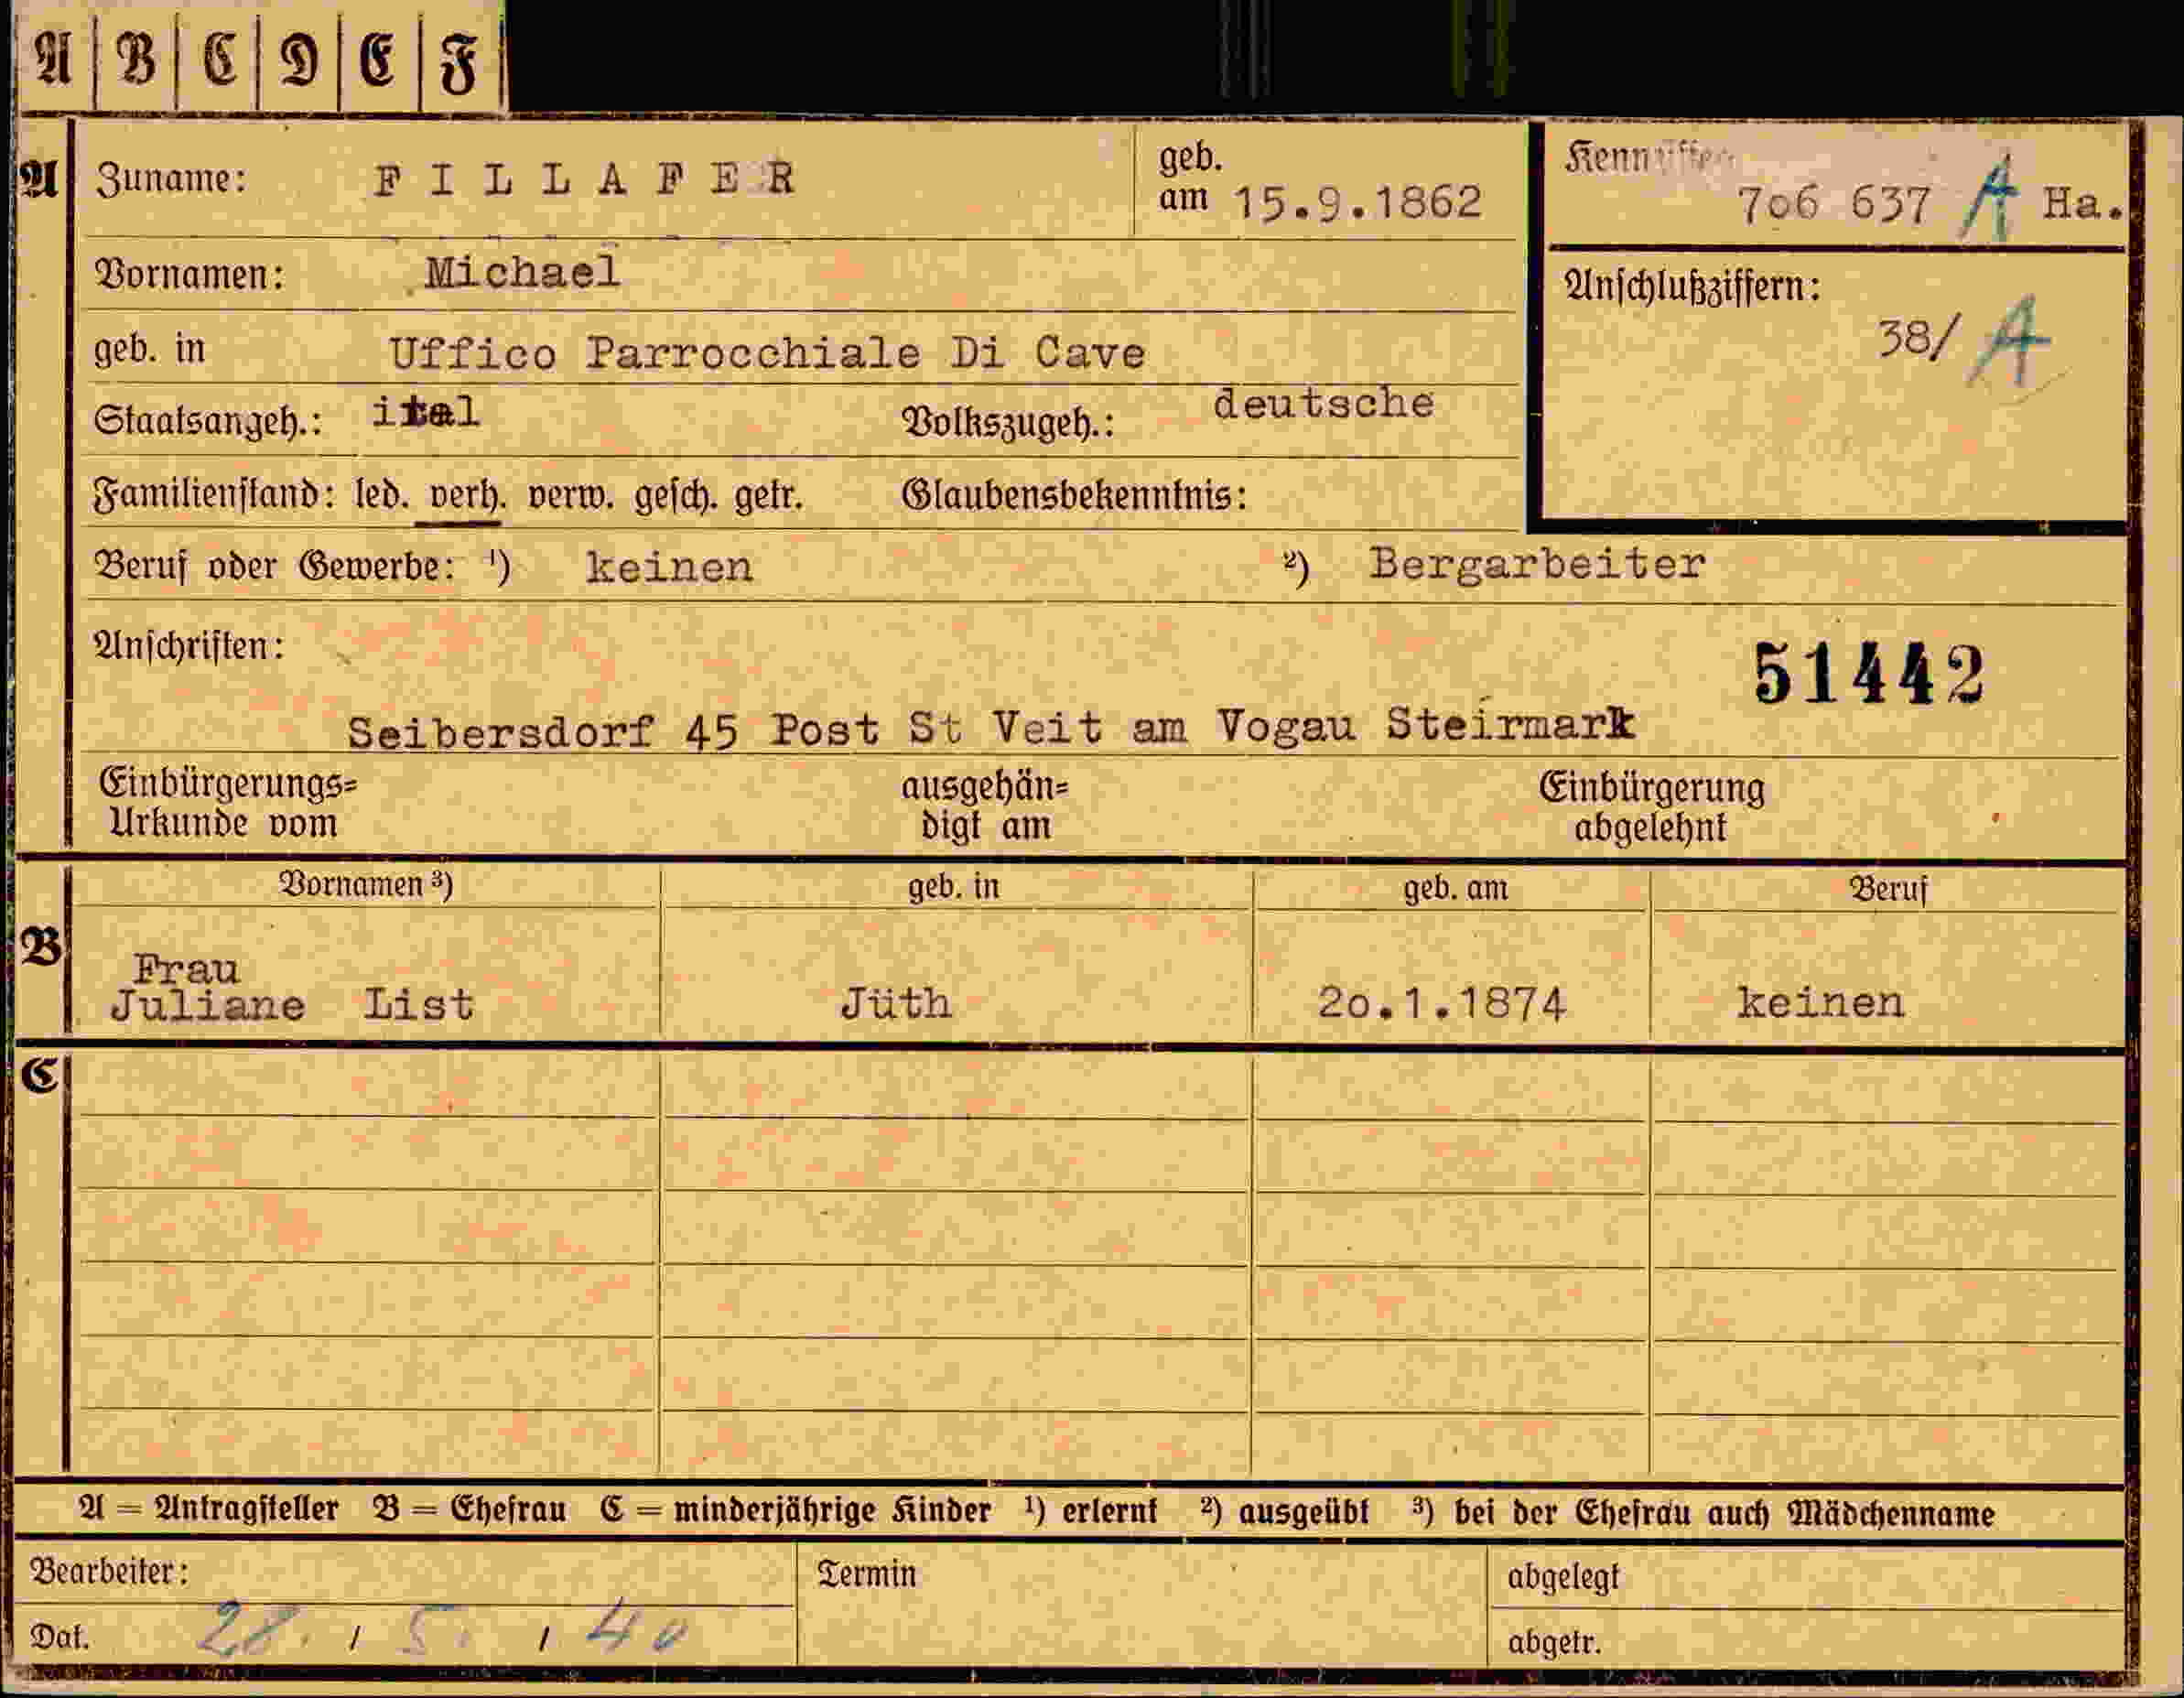 A B C D E F
A
Zuname: FILLAFER
geb. am 15.9.1862
Kennziffer
7o6 637 A Ha.
Vornamen: Michael
Anschlußziffern:
38/ A
geb. in Uffico Parrocchiale Di Cave
Staatsangeh.: ital Volkszugeh.: deutsche
Familienstand: led. verh. verw. gesch. getr. Glaubensbekenntnis:
Beruf oder Gewerbe: ¹) keinen ²) Bergarbeiter
Anschriften:
51442
Seibersdorf 45 Post St Veit am Vogau Steirmark
Einbürgerungs= ausgehän= Einbürgerung
Urkunde vom digt am abgelehnt
B
Vornamen ³) geb. in geb. am Beruf
Frau
Juliane List Jüth 2o.1.1874 keinen
C
A = Antragsteller B = Ehefrau C = minderjährige Kinder ¹) erlernt ²) ausgeübt ³) bei der Ehefrau auch Mädchenname
Bearbeiter: Termin abgelegt
Dat. 28. / 5. / 40 abgetr.